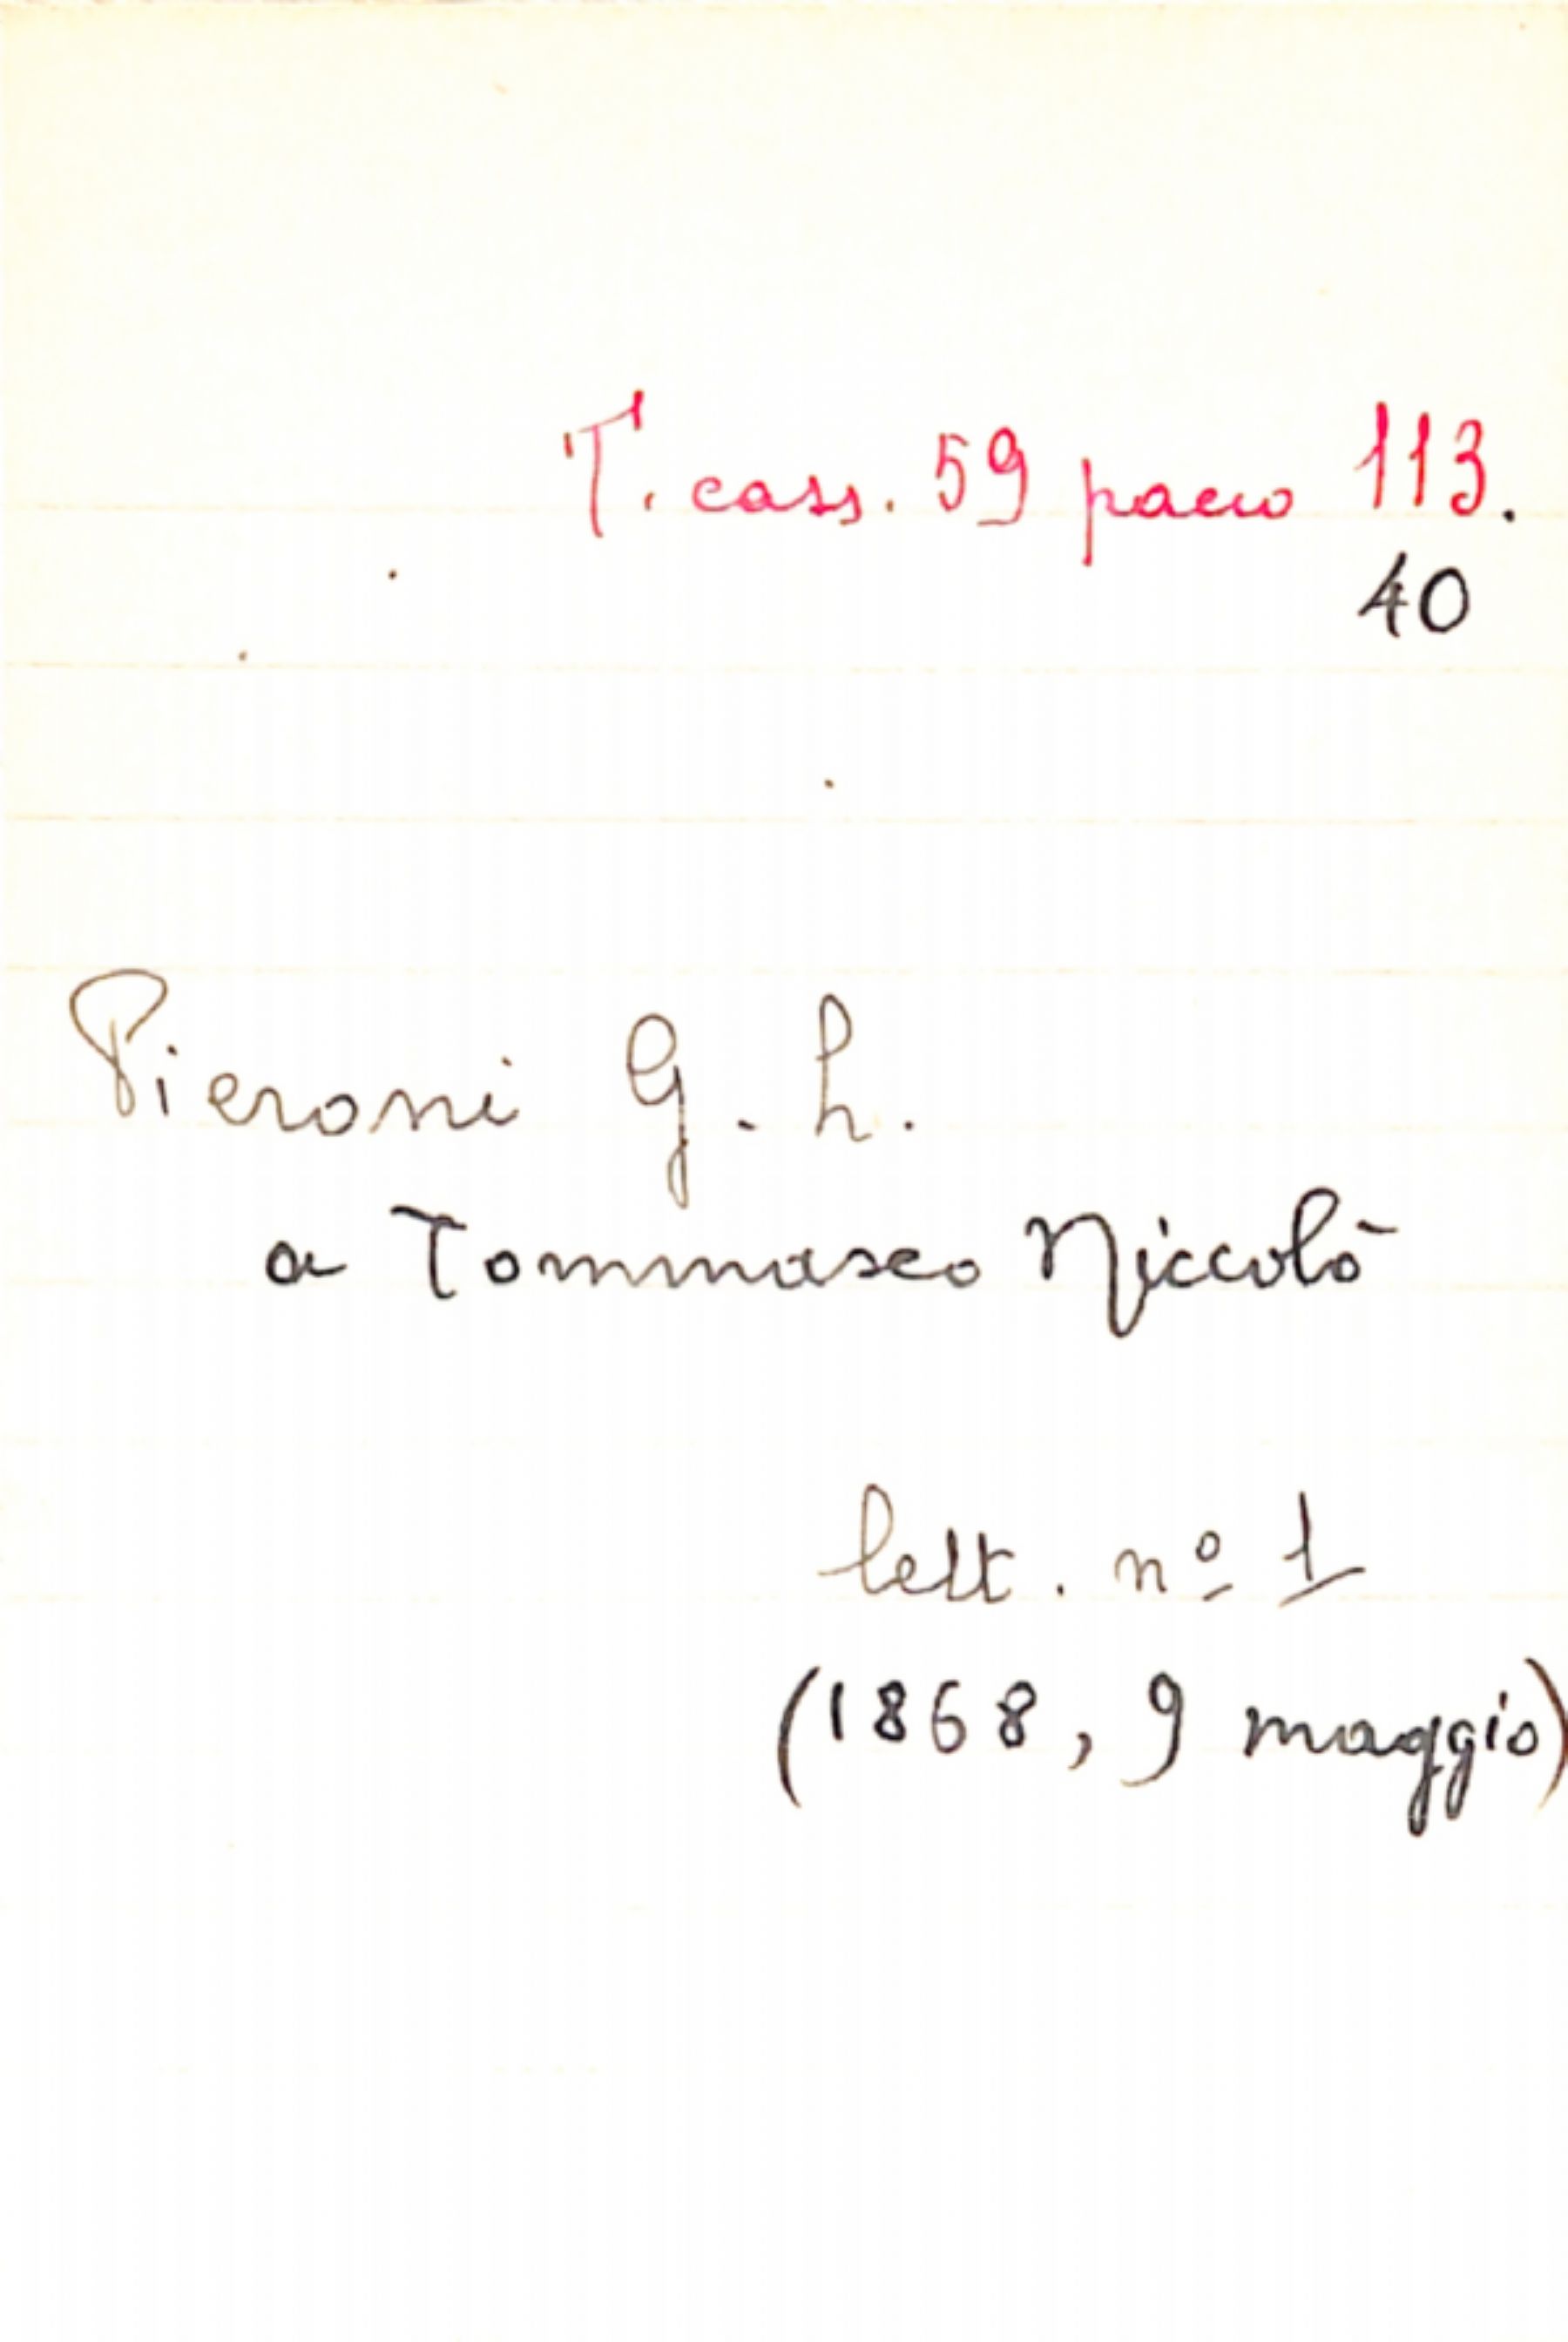 T. cass. 59 pacco 113.
40
Pieroni G. L.
a Tommaseo Niccolò
lett. nº 1
(1868, 9 maggio)